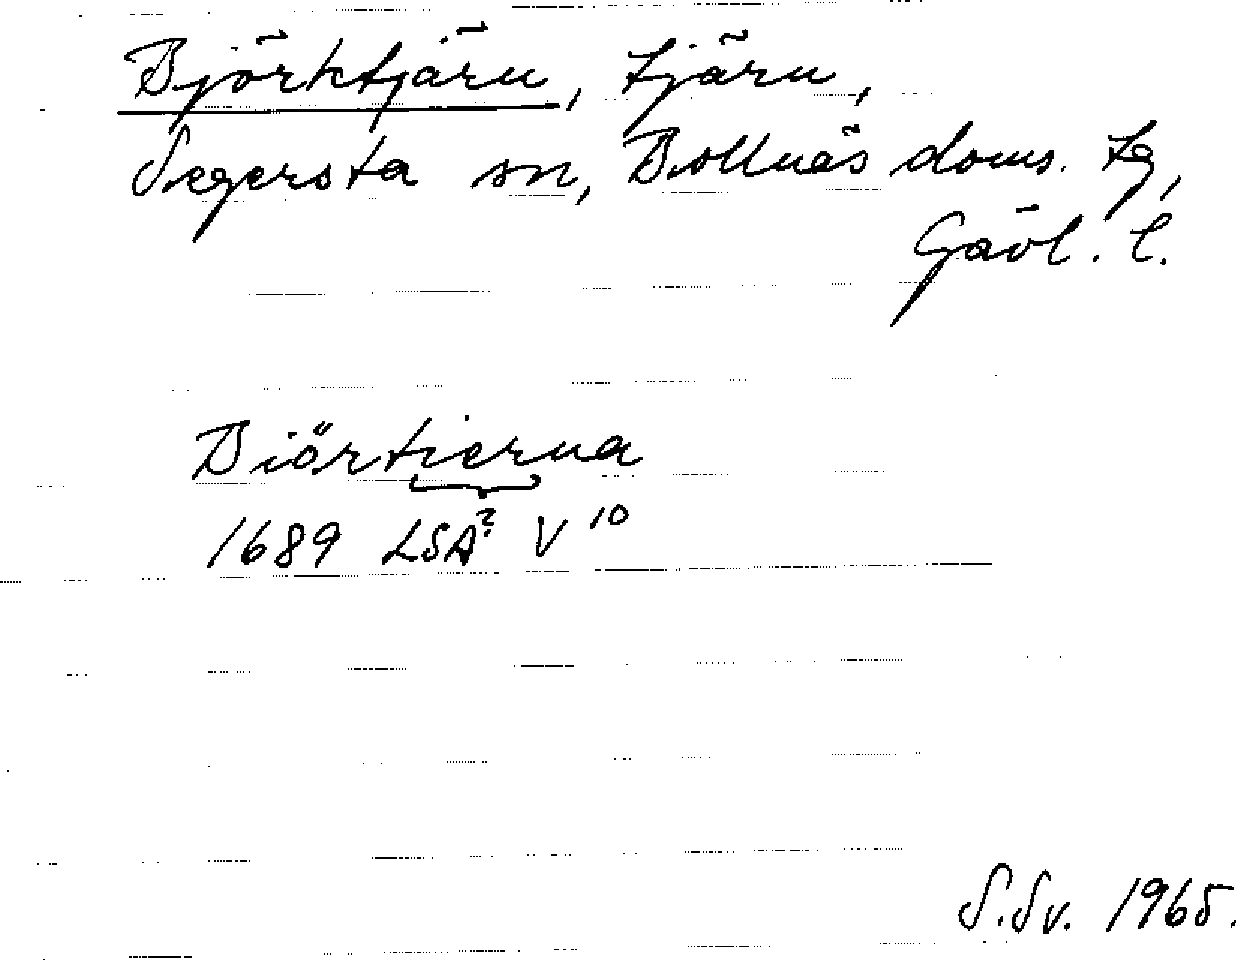 Björktjärn, tjärn,
Segersta sn, Bollnäs doms. tg,
Gävl. l.
Biörtierna
1689 LSA? V 10
S.Sv. 1965.